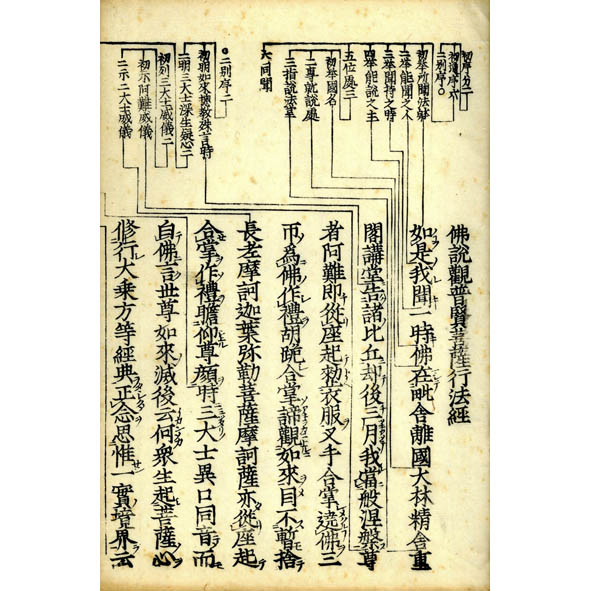 初序分二
初通序六
二別序○
初舉所聞法躰
二舉能聞之人
三舉聞持之時
四舉能説之主
五位處三
初舉國名
二専就説處
三指説法堂
六同聞
○二別序二
初明如來時
二明三大士深生疑心二
初列三大士威儀二
初示阿難威儀
二示二大士威儀
佛說觀普賢菩薩行法經
如是我聞一時佛在毗舍離國大林精舍重
閣講堂告諸比丘却後三月我當般涅槃尊
者阿難即從座起整衣服叉手合掌遶佛三
帀爲佛作禮胡跪合掌諦觀如來目不暫捨
長老摩訶迦葉弥勒菩薩摩訶薩亦從座起
合掌作禮瞻仰尊顔時三大士異口同音而
白佛言世尊如來滅後云何衆生起菩薩心
修行大乗方等經典正念思惟一實境界云